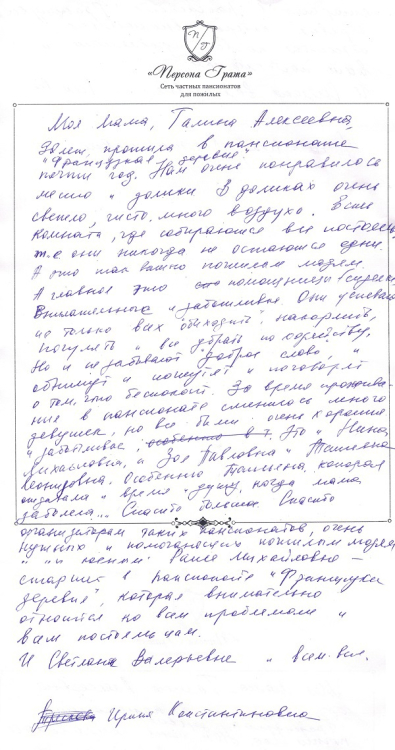 ПГ
«Персона Грата»
Сеть частных пансионатов
для пожилых
Моя мама, Галина Алексеевна,
прожила в пансионате
"Французкая деревня"
почти год. Нам очень понравилось
место и домики. В домиках очень
светло, чисто, много воздуха. Есть
комната, где собираются все постояльцы,
т.е. они никогда не остаются одни.
А это так важно пожилым людям.
А главное это помощницы (сиделки)
Внимательные и заботливые. Они успевают
не только всех обиходить, накормить,
погулять и все убрать по хозяйству,
Но и не забывают доброе слово, и
обнимут и пошутят и поговорят
о том, что беспокоит. За время прожива-
ния в пансионате сменилось много
девушек, но все были очень хорошие
и заботливые, особенно в т. Это и Нина
Михайловна, и Зоя Павловна и Татьяна
Леонидовна. Особенно Татьяна, которая
отдавала и время и душу, когда мама
заболела... Спасибо большое. Спасибо
организаторам таких пансионатов, очень
нужных и помогающих пожилым людям
и Раисе Михайловне –
старшей в пансионате "Французкая
деревня", которая внимательно
относится ко всем проблемам и
всем постояльцам.
И Светлане Валерьевне и всем-всем.
Ирина Константиновна